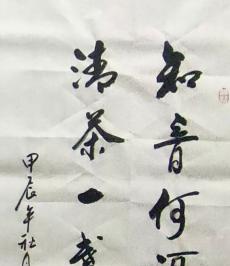 知音何
清茶一
甲辰年社月